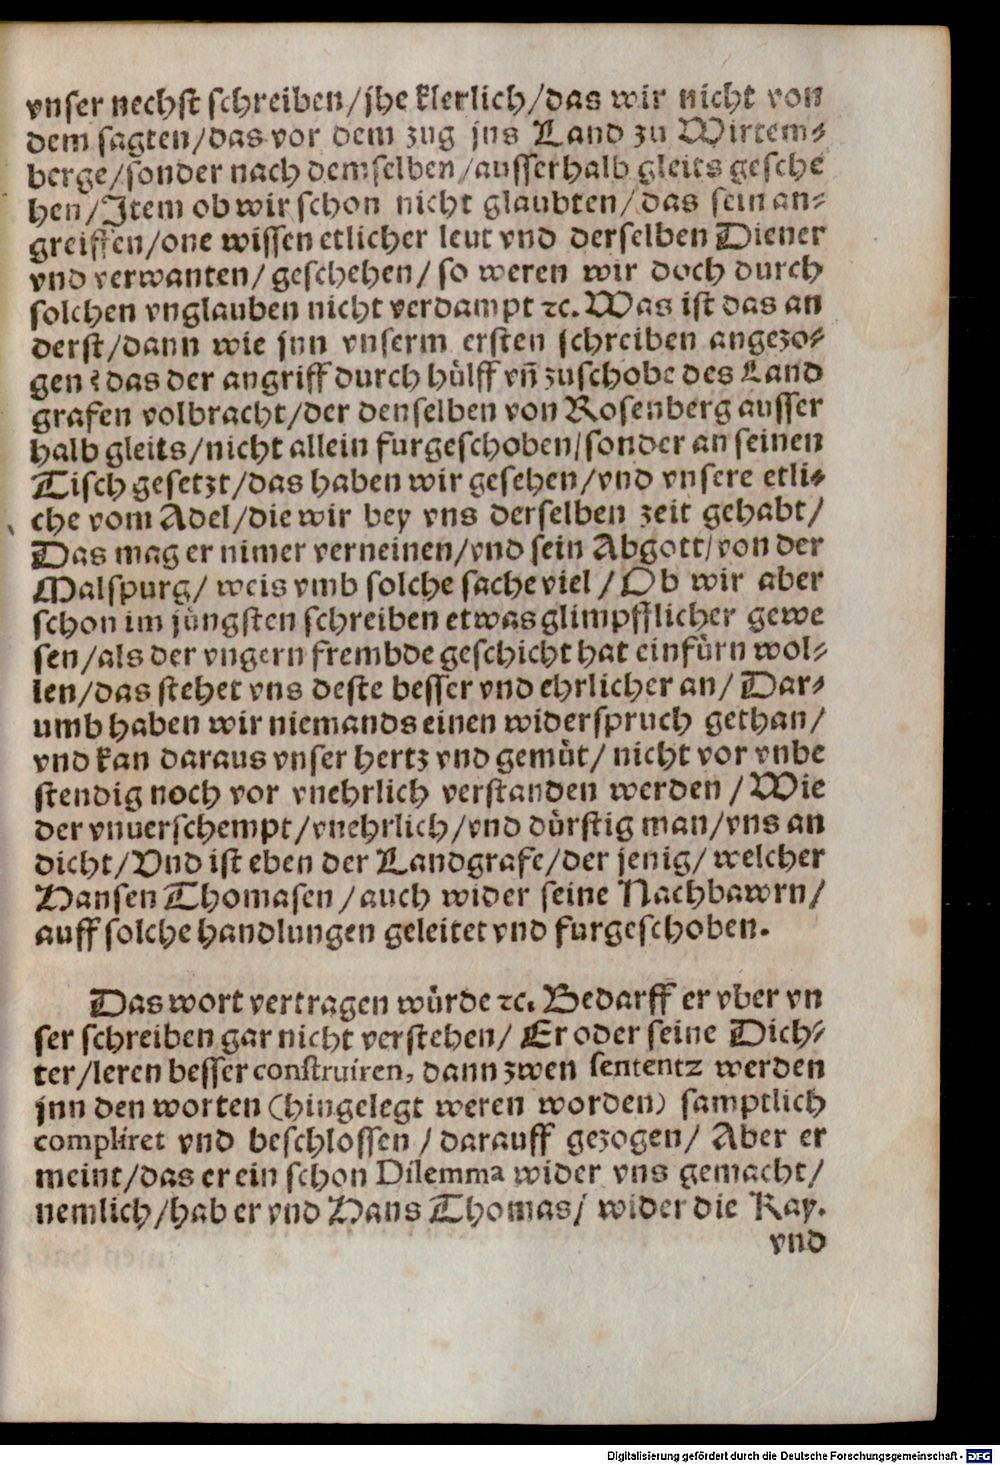 vnser nechst schreiben/jhe klerlich/das wir nicht von
dem sagten/das vor dem zug jns Land zu Wirtem⸗
berge/sonder nach demselben/ausserhalb gleits gesche
hen/Item ob wir schon nicht glaubten/das sein an⸗
greiffen/one wissen etlicher leut vnd derselben Diener
vnd verwanten/geschehen/so weren wir doch durch
solchen vnglauben nicht verdampt ꝛc. Was ist das an
derst/dann wie jnn vnserm ersten schreiben angezo⸗
gen? das der angriff durch hůlff vñ zuschobe des Land
grafen volbracht/der denselben von Rosenberg ausser
halb gleits/nicht allein furgeschoben/sonder an seinen
Tisch gesetzt/das haben wir gesehen/vnd vnsere etli⸗
che vom Adel/die wir bey vns derselben zeit gehabt/
Das mag er nimer verneinen/vnd sein Abgott/von der
Malspurg/weis vmb solche sache viel/Ob wir aber
schon im jůngsten schreiben etwas glimpfflicher gewe
sen/als der vngern frembde geschicht hat einfůrn wol⸗
len/das stehet vns deste besser vnd ehrlicher an/Dar⸗
umb haben wir niemands einen widerspruch gethan/
vnd kan daraus vnser hertz vnd gemůt/nicht vor vnbe
stendig noch vor vnehrlich verstanden werden/Wie
der vnuerschempt/vnehrlich/vnd důrstig man/vns an
dicht/Vnd ist eben der Landgrafe/der jenig/welcher
Hansen Thomasen/auch wider seine Nachbawrn/
auff solche handlungen geleitet vnd furgeschoben.
Das wort vertragen wůrde ꝛc. Bedarff er vber vn
ser schreiben gar nicht verstehen/Er oder seine Dich⸗
ter/leren besser construiren, dann zwen sententz werden
jnn den worten (hingelegt weren worden) samptlich
compliret vnd beschlossen/darauff gezogen/Aber er
meint/das er ein schon Dilemma wider vns gemacht/
nemlich/hab er vnd Hans Thomas/wider die Kay.
vnd
Digitalisierung gefördert durch die Deutsche Forschungsgemeinschaft - DFG